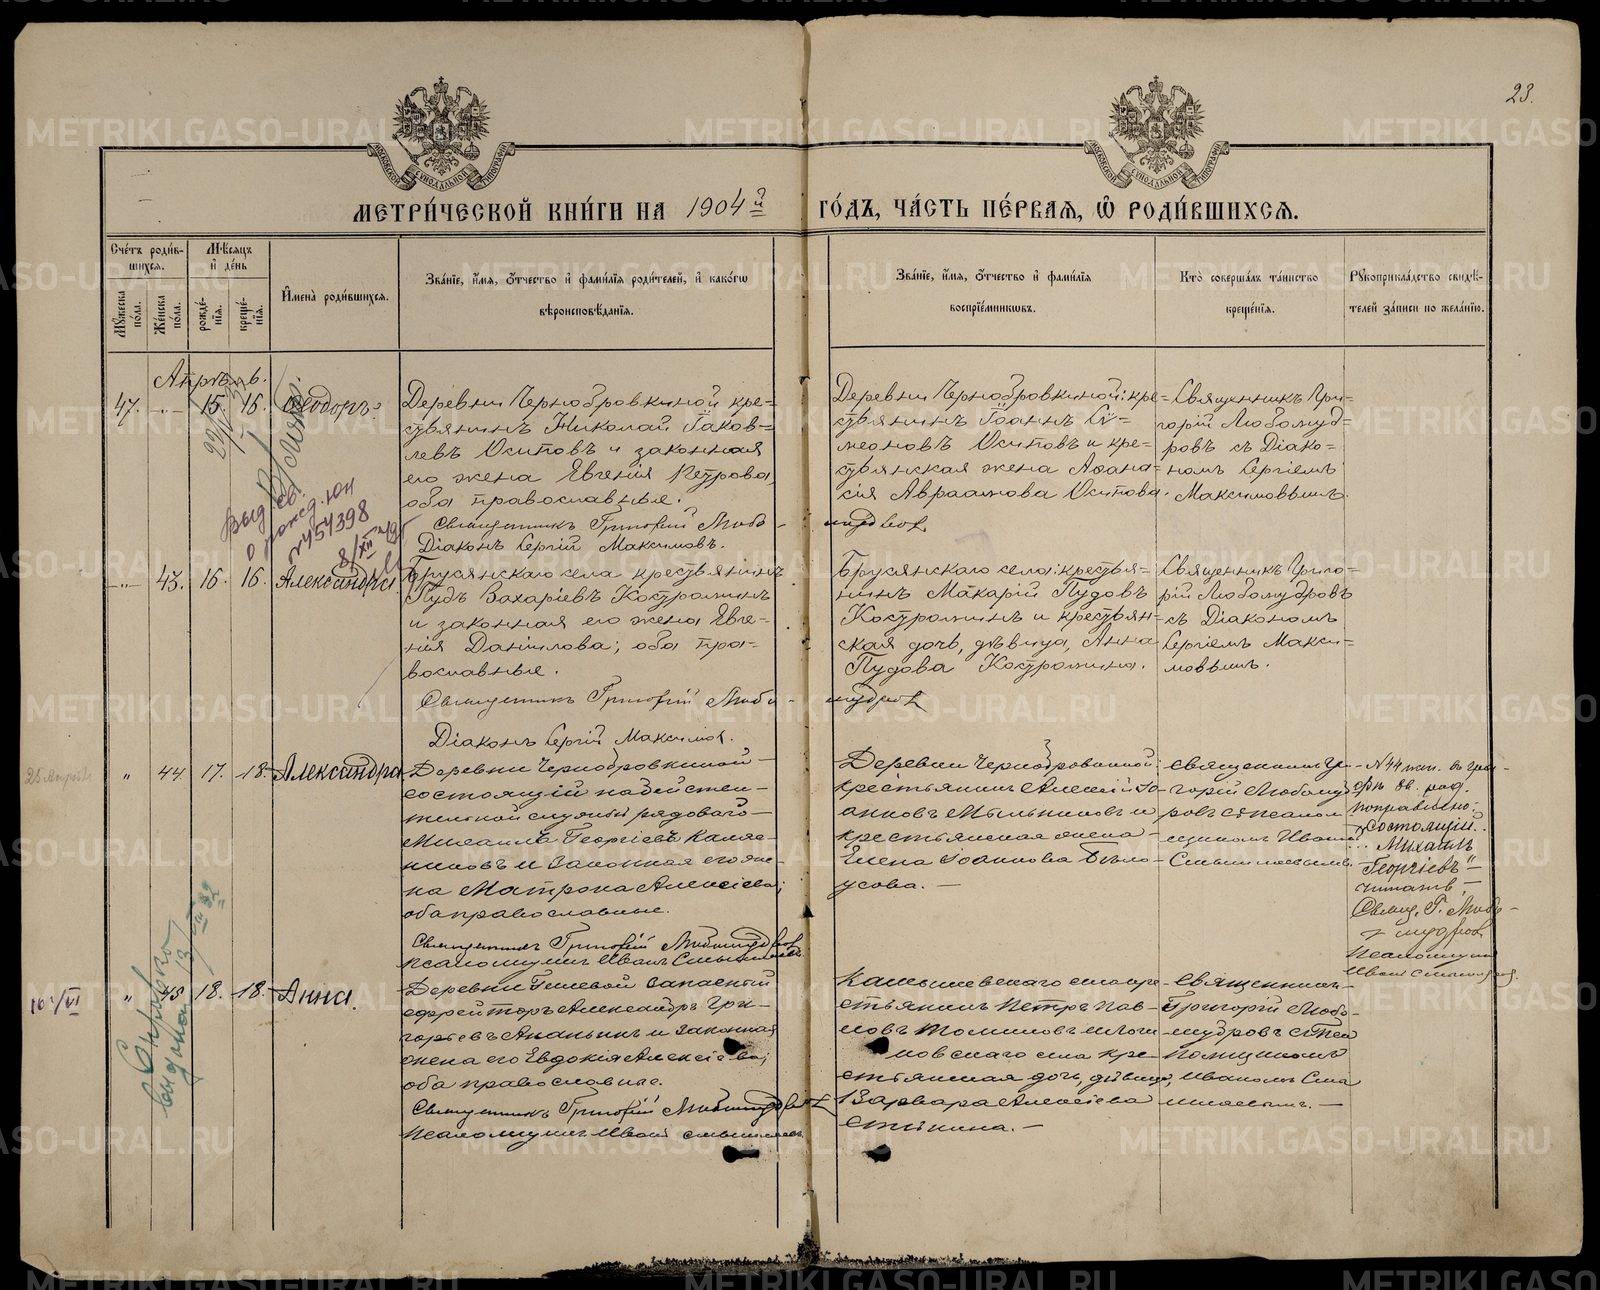 23.
МЕТРИ́ЧЕСКОЙ КНИ́ГИ НА 1904 й ГО́ДЪ, ЧА́СТЬ ПЕ́РВАѦ, Ѡ҆ РОДИ́ВШИХСѦ.
Сче́тъ роди́в-
шихсѧ.
Мѣ́сѧцъ
и҆ де́нь
Мꙋ́жеска по́ла.
Же́нска по́ла.
рожде́-
нїѧ.
креще́-
нїѧ.
И҆мена̀ роди́вшихсѧ.
Зва́нїе, и҆́мѧ, ѻ҆́тчество и҆ фамѝлїѧ роди́телей, и҆ како́гѡ
вѣроисповѣ́данїѧ.
Зва́нїе, и҆́мѧ, ѻ҆́тчество и҆ фамѝлїѧ
воспрїе́мникѡвъ.
Кто̀ соверша́лъ та́инство
креще́нїѧ.
Рꙋкоприкла́дство свидѣ́-
телей за́писи по жела́нїю.
Апрѣль.
47. 15. 16. Ѳеодоръ.
Деревни Чернобровкиной кре-
стьянинъ Николай Іаков-
левъ Осиповъ и законная
его жена Евгенія Петрова,
оба православные.
Священникъ Григорій Любо-
мудров
Діаконъ Сергій Максимовъ.
Деревни Чернобровкиной: кре-
стьянинъ Іоаннъ Си-
меоновъ Осиповъ и кре-
стьянская жена Аѳана-
сія Авраамова Осипова.
Священникъ Гри-
горій Любомуд-
ровъ съ Діако-
номъ Сергіемъ
Максимовымъ.
Выд. св.
о рожд. ЮЦ
№454398
8/XII
43. 16. 16. Александра.
Брусянскаго села крестьянинъ
Пудъ Захаріевъ Костроминъ
и законная его жена Евге-
нія Даніилова; оба пра-
вославные.
Священникъ Григорій Любо-
мудров
Діаконъ Сергій Максимов.
Брусянскаго села: крестья-
нинъ Макарій Пудовъ
Костроминъ и крестьян-
ская дочь, дѣвица, Анна
Пудова Костромина.
Священникъ Григо-
рій Любомудровъ
съ Діакономъ
Сергіемъ Макси-
мовымъ.
25 Апрѣля
" 44 17. 18. Александра
Деревни Чернобровкиной
состоящій на дѣйстви-
тельной службѣ рядовой
Михаилъ Георгіевъ
и законная его же-
на Матрона Алексіева;
оба православные.
Священникъ Григорій Любомудров
Псаломщикъ Иванъ
Деревни Чернобровкиной:
крестьянинъ Алексій Іо-
анновъ Мыльниковъ и
крестьянская жена
Елена Іоаннова Бѣло-
усова.
Священникъ Гри-
горій Любомуд-
ровъ с Псалом-
щикомъ Иваномъ
№ 44 жен. в гра-
фѣ зв. род.
поправлено:
"Состоящій
Михаилъ
Георгіевъ"
читать,
Свящ. Г. Любо-
мудров
Псаломщикъ
Иван
16/VI
" 45 18. 18. Анна.
Деревни Гилевой запасный
ефрейторъ Александръ Гри-
горьевъ Ананьинъ и законная
жена его Евдокія Алексіева;
оба православные.
Священникъ Григорій Любомудров
Псаломщикъ Иванъ
Камышевскаго села кре-
стьянинъ Петръ Пав-
ловъ Томиловъ и
села кре-
стьянская дочь, дѣвица,
Варвара Алексіева
Священникъ
Григорій Любо-
мудровъ с Пса-
ломщикомъ
Иваномъ
METRIKI.GASO-URAL.RU